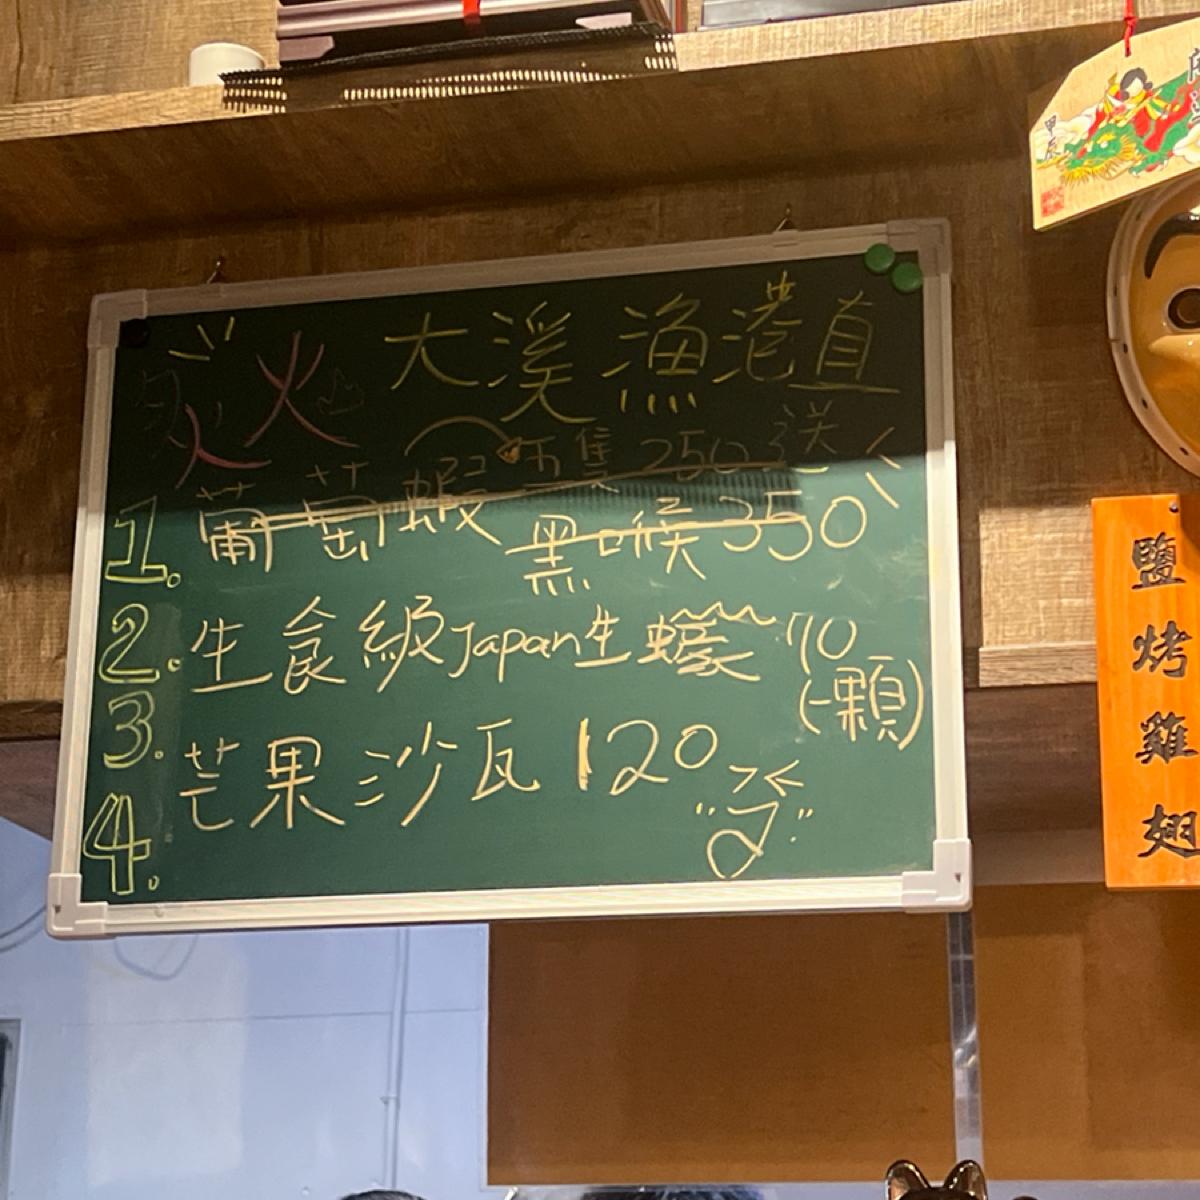 火 大溪漁港直
火 送
1. 葡萄蝦 五隻 250
黑喉 350
2. 生食級Japan生蠔 110
(一顆)
3. 芒果沙瓦 120
4.
甲辰
鹽烤雞翅